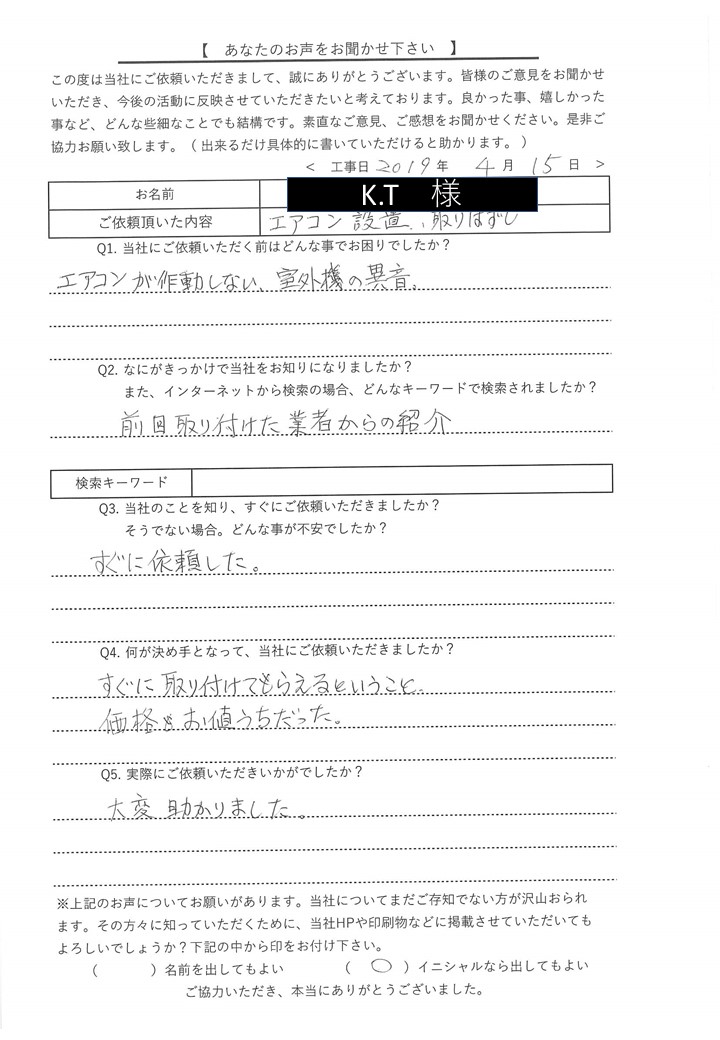 【 あなたのお声をお聞かせ下さい 】
この度は当社にご依頼いただきまして、誠にありがとうございます。皆様のご意見をお聞かせ
いただき、今後の活動に反映させていただきたいと考えております。良かった事、嬉しかった
事など、どんな些細なことでも結構です。素直なご意見、ご感想をお聞かせください。是非ご
協力お願い致します。（ 出来るだけ具体的に書いていただけると助かります。 ）
< 工事日 2019 年 4 月 15 日 >
お名前 K.T 様
ご依頼頂いた内容 エアコン設置、取りはずし
Q1. 当社にご依頼いただく前はどんな事でお困りでしたか？
エアコンが作動しない、室外機の異音。
Q2. なにがきっかけで当社をお知りになりましたか？
また、インターネットから検索の場合、どんなキーワードで検索されましたか？
前回取り付けた業者からの紹介
検索キーワード
Q3. 当社のことを知り、すぐにご依頼いただきましたか？
そうでない場合。どんな事が不安でしたか？
すぐに依頼した。
Q4. 何が決め手となって、当社にご依頼いただきましたか？
すぐに取り付けてもらえるということ。
価格もお値うちだった。
Q5. 実際にご依頼いただきいかがでしたか？
大変助かりました。
※上記のお声についてお願いがあります。当社についてまだご存知でない方が沢山おられ
ます。その方々に知っていただくために、当社HPや印刷物などに掲載させていただいても
よろしいでしょうか？下記の中から印をお付け下さい。
（ ）名前を出してもよい （ ○ ）イニシャルなら出してもよい
ご協力いただき、本当にありがとうございました。